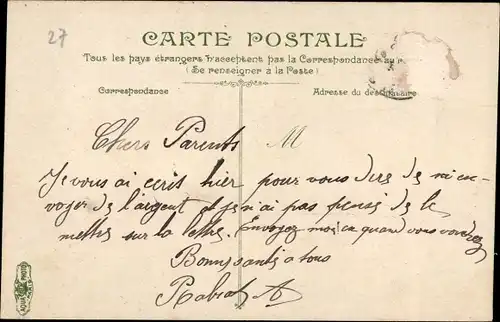 27
CARTE POSTALE
Tous les pays étrangers n'acceptent pas la Correspondance au
(Se renseigner à la Poste)
Correspondance
Adresse du destinataire
Chers Parents M
Je vous ai ecris hier pour vous dire de m'en-
voyer de l'argent et je n'ai pas pensé de le
mettre sur la lettre. Envoyez moi ca quand vous voudrez
Bonne santé a tous
A
AQUA PHOTO
PARIS